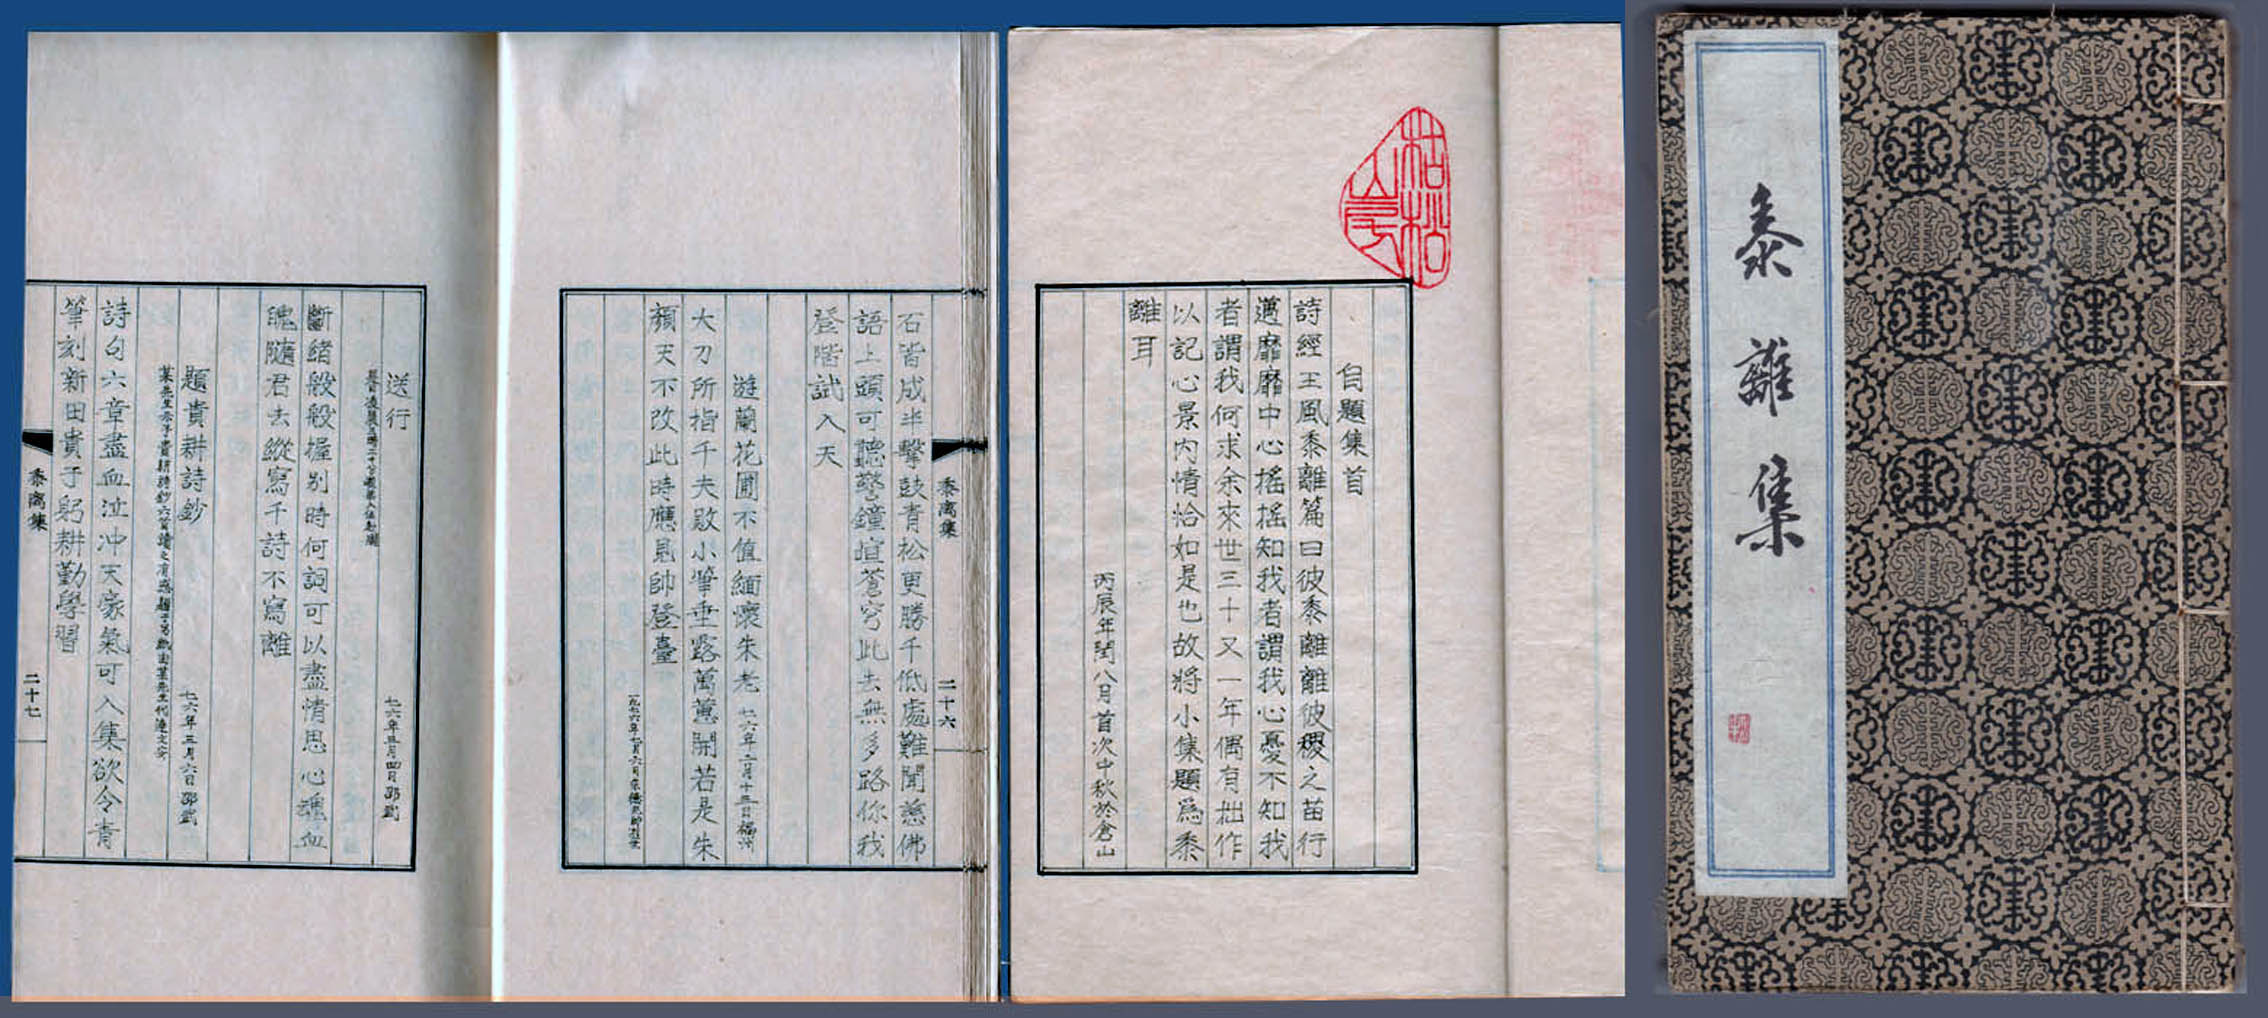 黍離集
枯松山房
自題集首
詩經王風黍離篇曰彼黍離離彼稷之苗行
邁靡靡中心搖搖知我者謂我心憂不知我
者謂我何求余來世三十又一年偶有拙作
以記心景內情恰如是也故將小集題爲黍
離耳
丙辰年閏八月首次中秋於倉山
石皆成半擊鼓青松更勝千低處難聞慈佛
語上頭可聽警鐘喧蒼穹此去無多路你我
登階試入天
遊蘭花圃不值緬懷朱老 七六年二月十三日福州
大刀所指千夫敗小筆垂露萬蕙開若是朱
顏天不改此時應見帥登臺
黍离集
二十六
送行
七六年三月四日邵武
斷緒般般握别時何詞可以盡情思心魂血
魄隨君去縱寫千詩不寫離
題貴耕詩鈔
七六年三月六日邵武
詩句六章盡血泣冲天豪氣可入集欲令青
筆刻新田貴于躬耕勤學習
黍离集
二十七